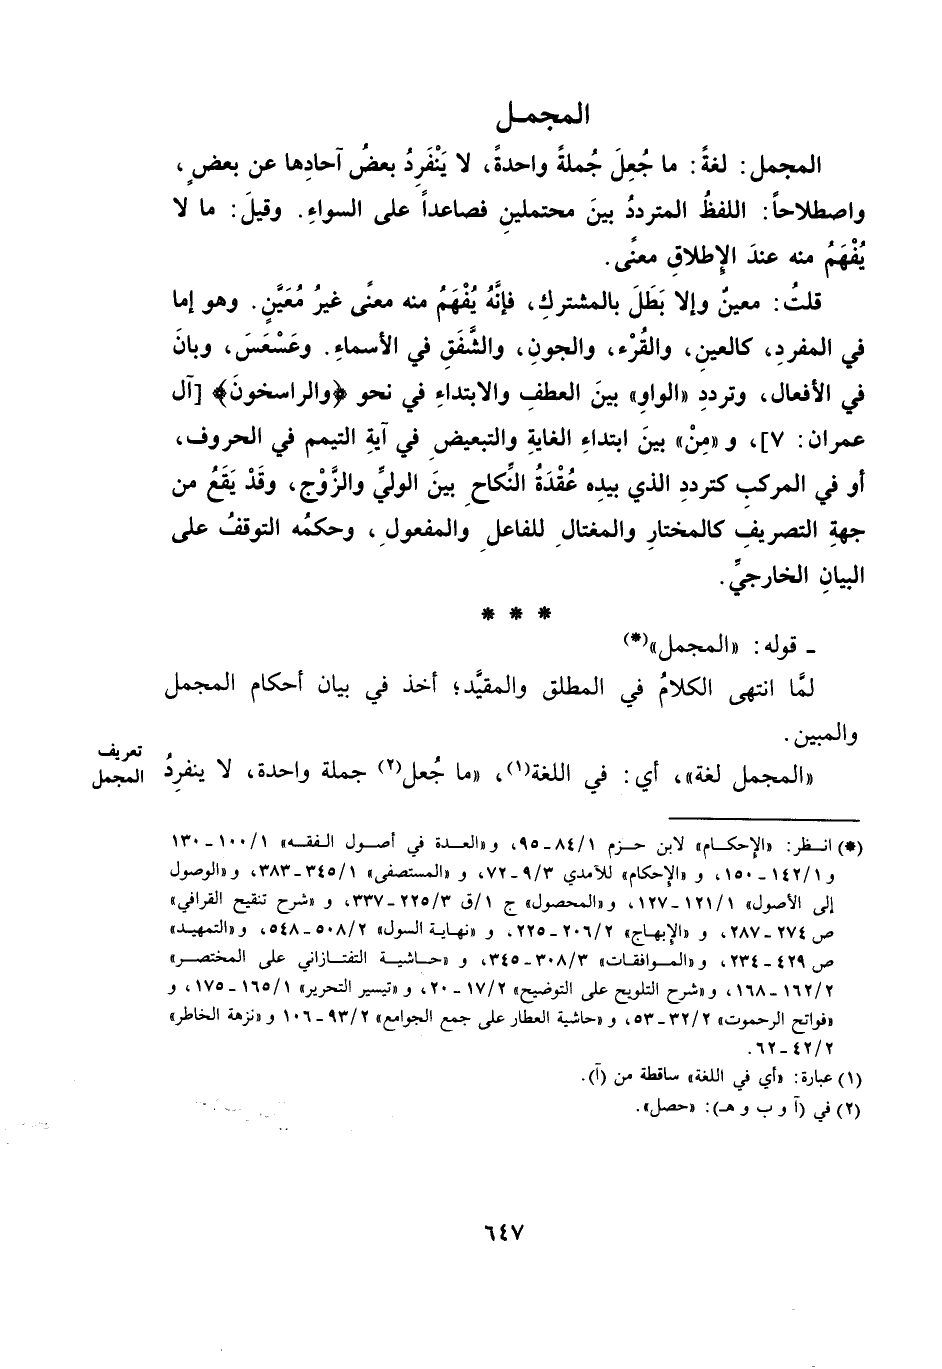 المجمـل
المجمل: لغةً: ما جُعِلَ جُملةً واحدةً، لا يَنْفَرِدُ بعضُ آحادِها عن بعضٍ،
واصطلاحاً: اللفظُ المترددُ بينَ محتملينِ فصاعداً على السواءِ. وقيلَ: ما لا
يُفْهَمُ منه عندَ الإِطلاقِ معنًى.
قلتُ: معينٌ وإلا بَطَلَ بالمشتركِ، فإنَّهُ يُفْهَمُ منه معنًى غيرُ مُعَيَّنٍ. وهو إما
في المفردِ، كالعينِ، والقُرْء، والجونِ، والشَّفَقِ في الأسماءِ. وعَسْعَسَ، وبانَ
في الأفعال، وترددِ «الواوِ» بينَ العطفِ والابتداءِ في نحو ﴿والراسخونَ﴾ [آل
عمران: ٧]، و «مِنْ» بينَ ابتداءِ الغايةِ والتبعيضِ في آيةِ التيمم في الحروف،
أو في المركبِ كترددِ الذي بيدِه عُقْدَةُ النِّكاحِ بينَ الوليِّ والزَّوْجِ، وقَدْ يَقَعُ من
جهةِ التصريفِ كالمختارِ والمغتالِ للفاعلِ والمفعولِ، وحكمُه التوقفُ على
البيانِ الخارجيِّ.
* * *
ـ قوله: «المجمل»(*)
لمَّا انتهى الكلامُ في المطلق والمقيَّد؛ أخذ في بيان أحكام المجمل
والمبين.
«المجمل لغة»، أي: في اللغة(١)، «ما جُعل(٢) جملة واحدة، لا ينفردُ
تعريف
المجمل
(*) انـظر: «الإحكـام» لابن حـزم ١/ ٨٤ـ٩٥، و«العـدة في أصـول الـفقـه» ١/ ١٠٠ـ١٣٠
و١/ ١٤٢ـ١٥٠، و «الإحكام» للآمدي ٣/ ٩ـ٧٢، و «المستصفى» ١/ ٣٤٥ـ٣٨٣، و«الوصول
إلى الأصول» ١/ ١٢١ـ١٢٧، و«المحصول» ج ١/ق ٣/ ٢٢٥ـ٣٣٧، و «شرح تنقيح القرافي»
ص ٢٧٤ـ٢٨٧، و «الإبهاج» ٢/ ٢٠٦ـ٢٢٥، و «نهاية السول» ٢/ ٥٠٨ـ٥٤٨، و«التمهيد»
ص ٤٢٩ـ٢٣٤، و«المـوافقـات» ٣/ ٣٠٨ـ٣٤٥، و «حـاشيـة التفتـازاني على المختصـر»
٢/ ١٦٢ـ١٦٨، و«شرح التلويح على التوضيح» ٢/ ١٧ـ٢٠، و«تيسير التحرير» ١/ ١٦٥ـ١٧٥، و
«فواتح الرحموت» ٢/ ٣٢ـ٥٣، و «حاشية العطار على جمع الجوامع» ٢/ ٩٣ـ١٠٦ و«نزهة الخاطر»
٢/ ٤٢ـ٦٢.
(١) عبارة: «أي في اللغة» ساقطة من (آ).
(٢) في (آ و ب و هـ): «حصل».
٦٤٧